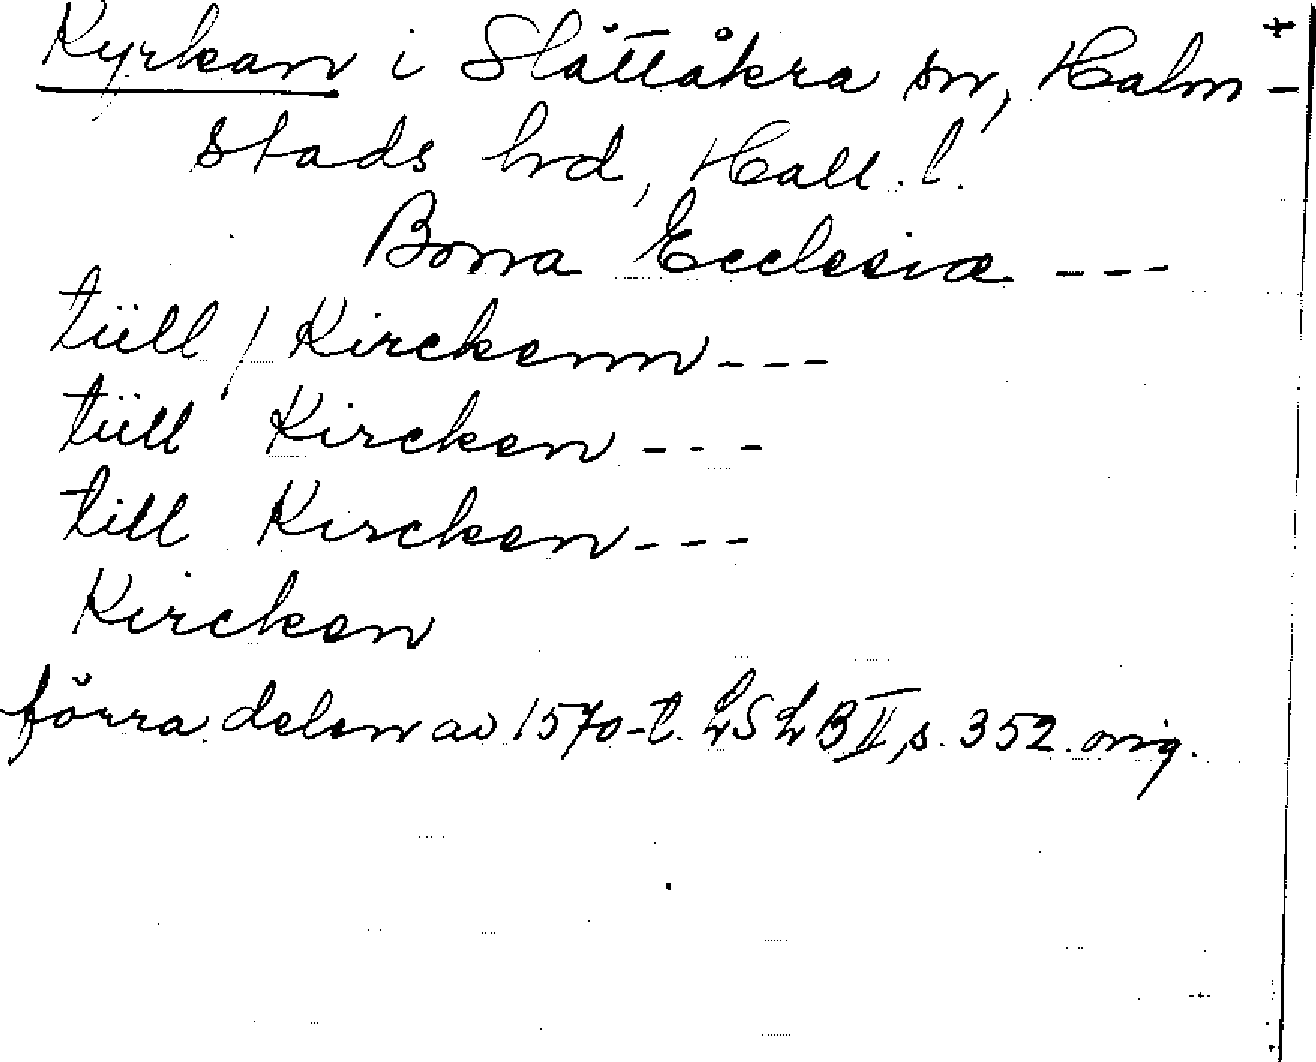 +
Kyrkan i Slättåkra sn, Halm-
stads hrd, Hall. l.
Bona Ecclesiæ ---
tüll / Kirckenn ---
tüll Kircken ---
till Kircken ---
Kircken
förra delen av 1570-t. LSLB II, s. 352. orig.